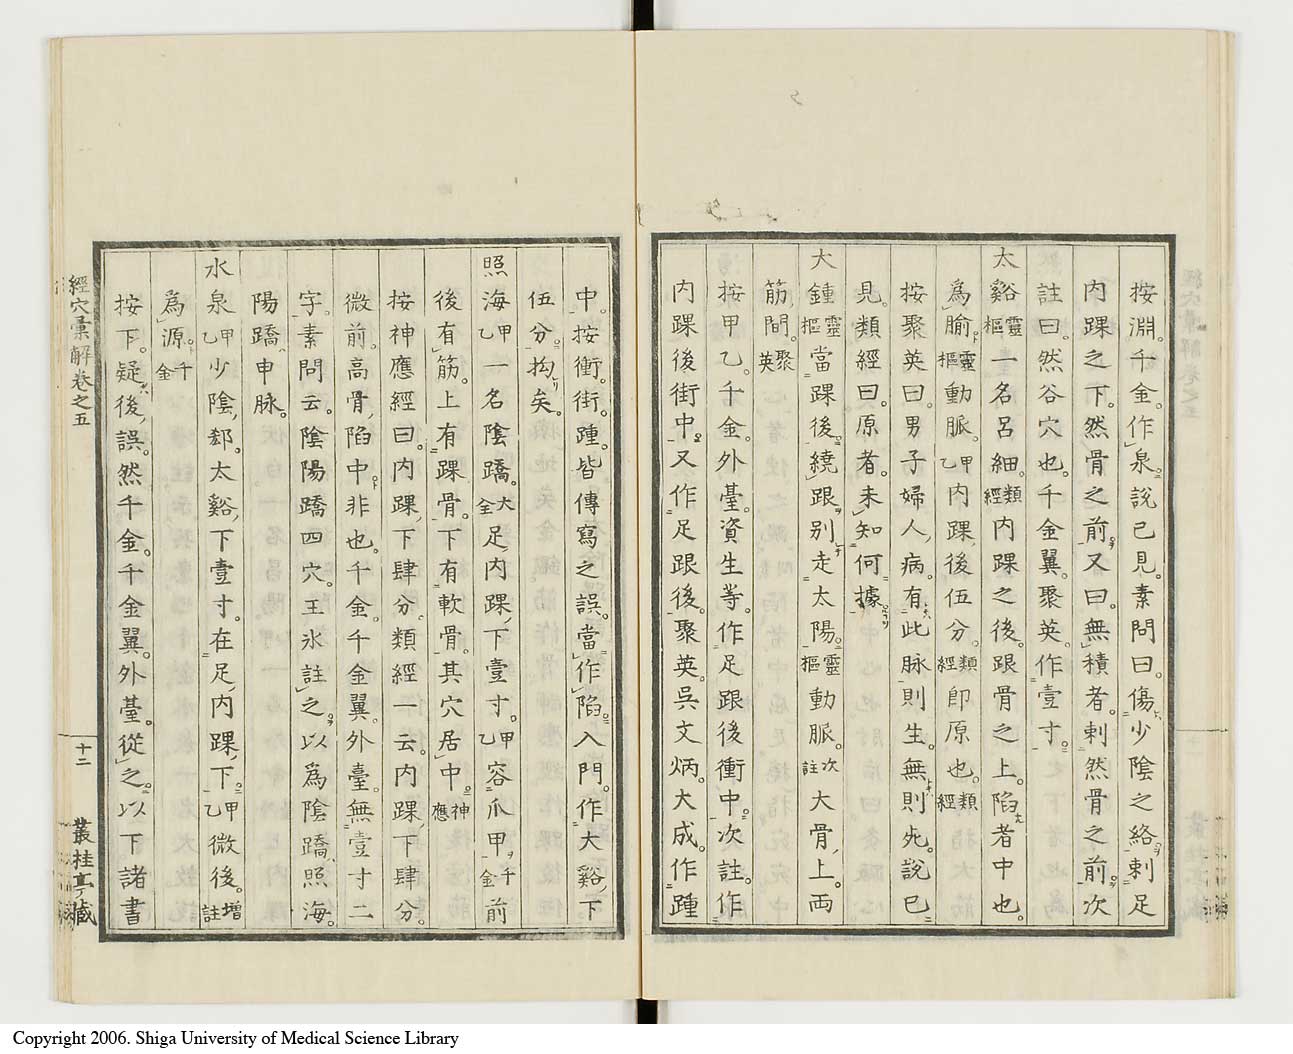 按淵。千金。作泉。說已見。素問曰。傷少陰之絡。刺足
內踝之下。然骨之前。又曰。無積者。刺然骨之前。次
註曰。然谷穴也。千金翼。聚英。作壹寸。
太谿靈樞一名呂細。類經內踝之後。跟骨之上。陷者中也。
為腧。靈樞動脈。甲乙內踝後伍分。類經卽原也。類經
按聚英曰。男子婦人病。有此脉則生。無則死。說已
見。類經曰。原者。未知何據。
大鍾靈樞當踝後。繞跟別走太陽。靈樞動脈。次註大骨上。兩
筋間。聚英
按甲乙。千金。外臺。資生等。作足跟後衝中。次註。作
內踝後街中。又作足跟後。聚英。吳文炳。大成。作踵
中。按衝。街。踵。皆傳寫之誤。當作陷。入門。作大谿下
伍分。拘矣。
照海甲乙一名陰蹻。大全足內踝下壹寸。甲乙容爪甲。千金前
後有筋。上有踝骨。下有軟骨。其穴居中。神應
按神應經曰。內踝下肆分。類經一云。內踝下肆分。
微前。高骨陷中。非也。千金。千金翼。外臺。無壹寸二
字。素問云。陰陽蹻四穴。王氷註之。以為陰蹻照海。
陽蹻申脉。
水泉甲乙少陰郄。太谿下壹寸。在足內踝下。甲乙微後。增註
為源。千金
按下。疑後誤。然千金。千金翼。外臺。從之。以下諸書
經穴彙解卷之五
十二
叢桂亭藏
Copyright 2006. Shiga University of Medical Science Library